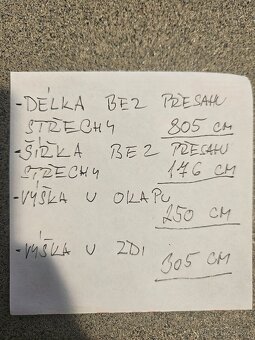 -DÉLKA BEZ PŘESAHU
STŘECHY 805 CM
-ŠÍŘKA BEZ PŘESAHU
STŘECHY 176 CM
-VÝŠKA U OKAPU
250 CM
-VÝŠKA U ZDI
305 CM